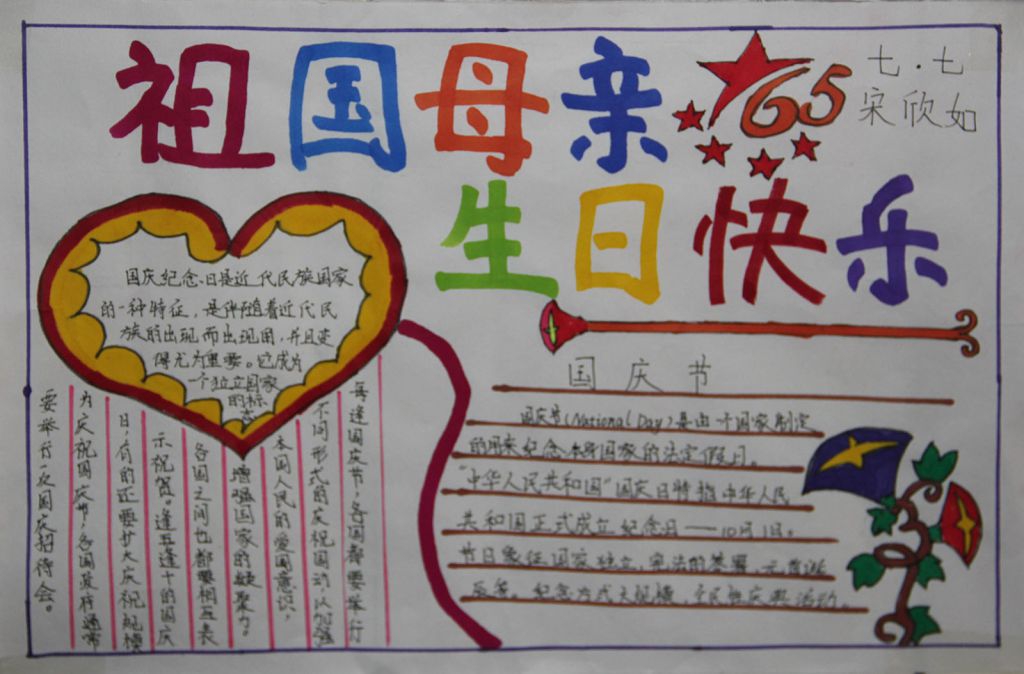 祖国母亲
65
七.七
宋欣如
生日快乐
国庆纪念日是近代民族国家
的一种特征,是伴随着近代民
族的出现而出现国,并且变
得尤为重要。它成为
一个独立国家
的标
志
每逢国庆节,各国都要举行
不同形式的庆祝国动,以加强
本国人民的爱国意识,
增强国家的凝聚力。
各国之间也都要相互表
示祝贺。逢五逢十的国庆
日,有的还要扩大庆祝规模
为庆祝国庆节,各国政府通常
要举行一次国庆招待会。
国庆节
国庆节(National Day)是由一个国家制定
的用来纪念 国家的法定假日。
“中华人民共和国”国庆日特指中华人民
共和国正式成立纪念日——10月1日。
节日象征国家独立,宪法的签署,元首诞
纪念方式大规模,全民性庆典活动。